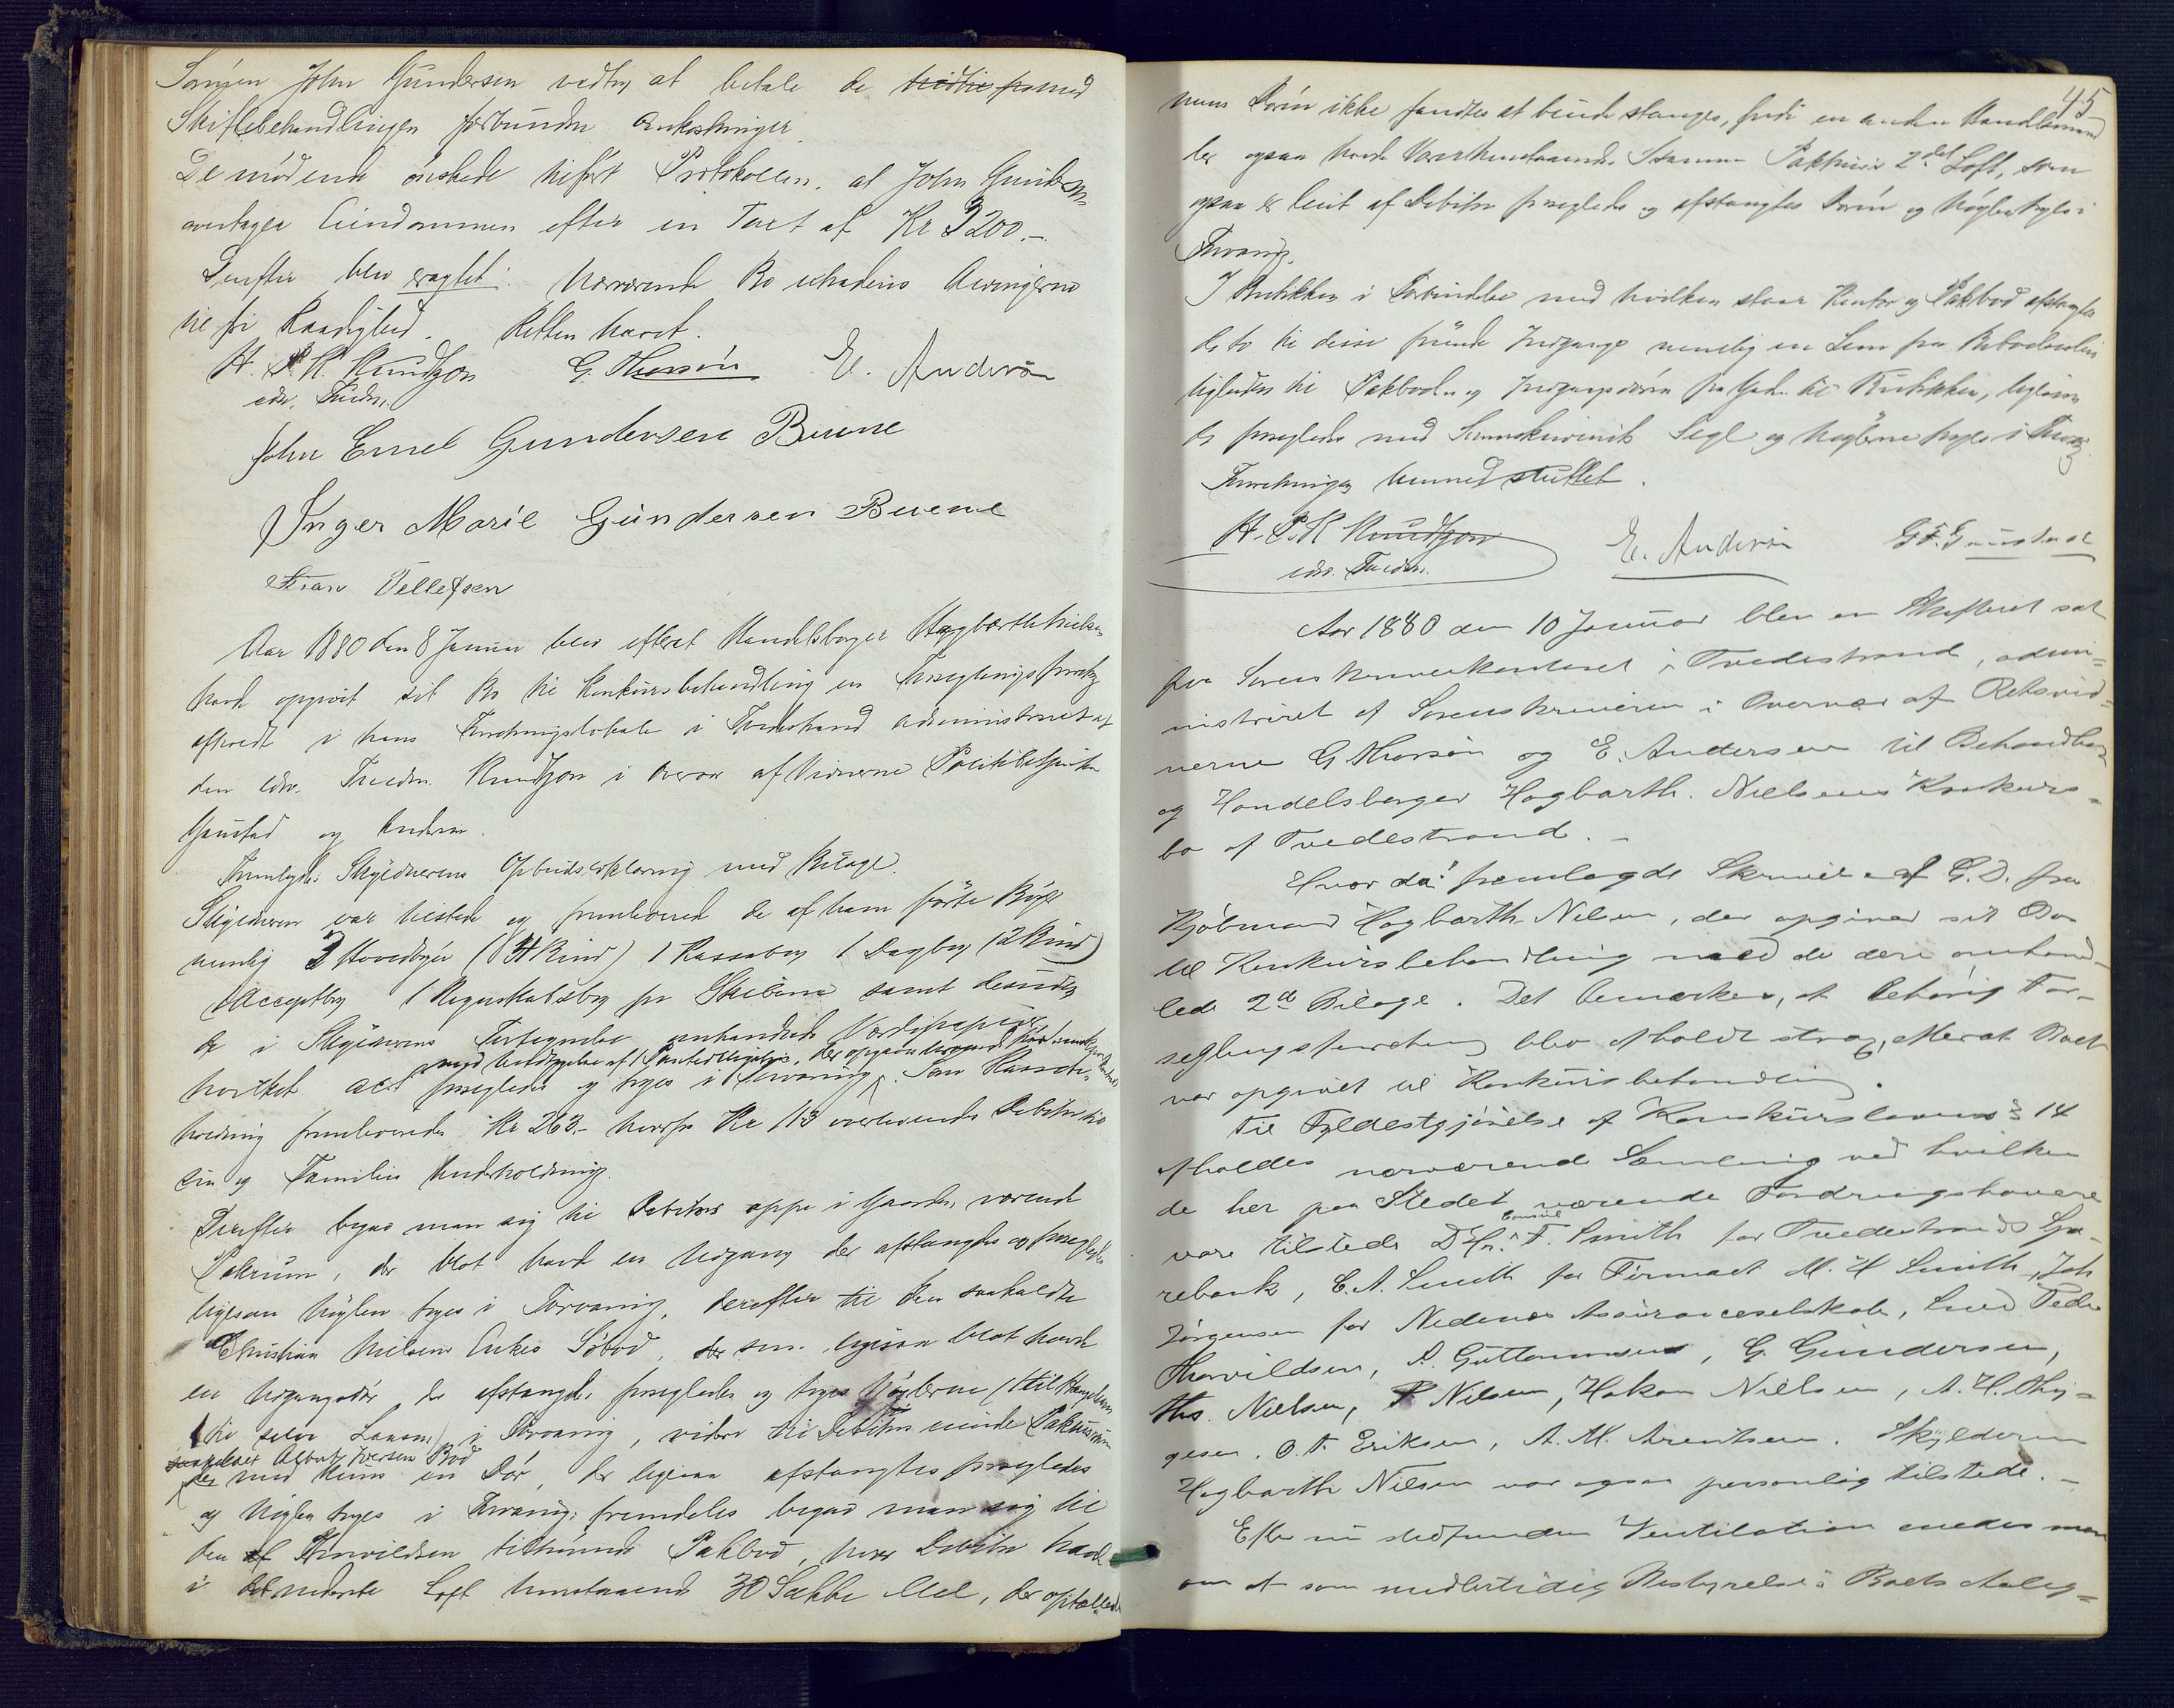 Sønnen John Gundersen vedtog at betale de med
Skiftebehandlingen forbundne Omkostninger.
De mødende ønskede tilført Protokollen, at John Gundersen
overtager Eiendommen efter en Taxt af Kr 3200.-
Derefter blev eragtet: Nærværende Bo extraderes Arvingerne
til fri Raadighed. Retten hævet.
H. P. K. Knudtzon G. Thorsøn E. Andersen
edsv. Fuldm.
John Emil Gundersen Buene
Inger Marie Gundersen Buene
Stian Tellefsen
Aar 1880 den 8 Januar blev efterat Handelsborger Hagbarth Nielsen
havde opgivet sit Bo til Konkursbehandling en Forseglingsforretning
afholdt i hans Forretningslokale i Tvedestrand administreret af
den edsv. Fuldm. Knudtzon i Overvær af Vidnerne Politibetjent
Gaustad og Andersen.
Fremlagdes Skyldnerens Opbudserklæring med Bilage.
Skyldneren var tilstede og fremleverede de af ham førte Bøger
nemlig 3 Hovedbøger (4 Bind) 1 Kassabog 1 Dagbog (2 Bind)
1 Acceptbog 1 Regnskabsbog for Skibene samt desuden
de i Skyldnerens Fortegnelse omhandlede Værdipapirer
med Undtagelse af 1 Panteobligation, der opgaves
hvilket alt forsegledes og toges i Forvaring. Som Kassebe-
holdning fremleveredes Kr 263.- hvorfra Kr 113 overleveredes Debitor til
sin og Families Underholdning.
Derefter begav man sig til Debitors oppe i Gaarden værende
Pakrum, der blot havde en Udgang der afstængtes og forsegledes
ligesom Nøglen toges i Forvaring, derefter til den saakaldte
Christian Nielsens Enkes Søbod, som ligesaa blot havde
en Udgangsdør der afstængtes forsegledes og toges Nøglerne (1 til Hængelaasen
1 til selve Laasen) i Forvaring, videre til Debitors
Albert Iversens Bod
med kun en Dør, der ligesaa afstængtes forsegledes
og Nøglen toges i Forvaring; fremdeles begav man sig til
den af Thorvildsen tilhørende Pakbod, hvor Debitor havde
i det nederste Loft henstaaende 30 Sække Mel, der optaltes
45
mens Døren ikke fandtes at burde stænges, fordi en anden Handelsmand
der ogsaa havde Varer henstaaende. Samme Pakhus's 2det Loft, som
ogsaa er leiet af Debitor forsegledes og afstængtes Døren og Nøglen toges i
Forvaring.
I Butikken i Forbindelse med hvilken staar Kontor og Pakbod afstængtes
de to til disse førende Indgange nemlig en Lem fra Beboelseslei-
ligheden til Pakboden og Indgangsdøren fra Gaden til Butikken, ligesom
de forsegledes med Sorenskriverens Segl og Nøglerne toges i Forvaring.
Forretningen hermed sluttet.
H. P. K Knudtzon E. Andersen G. F. Gaustad
edsv. Fuldm.
Aar 1880 den 10 Januar blev en Skifteret sat
paa Sorenskriverkontoret i Tvedestrand, admi-
nistreret af Sorenskriveren i Overvær af Retsvid-
nerne G Thorsøn og E. Andersen til Behandling
af Handelsborger Hagbarth Nielsens Konkurs-
bo af Tvedestrand.-
Hvor da: fremlagdes Skrivelse af G. D. fra
Kjøbmand Hagbarth Nielsen, der opgiver sit Bo
til Konkursbehandling med de deri omhand-
lede 2de Bilage. Det bemærkes, at behørig For-
seglingsforretning blev afholdt strax efterat Boet
var opgivet til Konkursbehandling.
Til Fyldestgjørelse af Konkurslovens § 14
afholdes nærværende Samling ved hvilken
de her paa Stedet værende Fordringshavere
vare tilstede DHr. Consul F. Smith for Tvedestrands Spa-
rebank, C. A. Smith for Firmaet M. H Smith, Joh
Jørgensen for Nedenes Assuranceselskab, Smed Peder
Thorvildsen, A. Guttormsen, G. Gundersen,
Ths. Nielsen, P Nilsen, Hakon Nielsen, A. H. Thy-
gesen, O. A. Eriksen, A. M. Arentsen. Skyldneren
Hagbarth Nilsen var ogsaa personlig tilstede.-
Efter en stedfunden Ventilation enedes man
om at som midlertidig Bestyrelse i Boets Anlig-